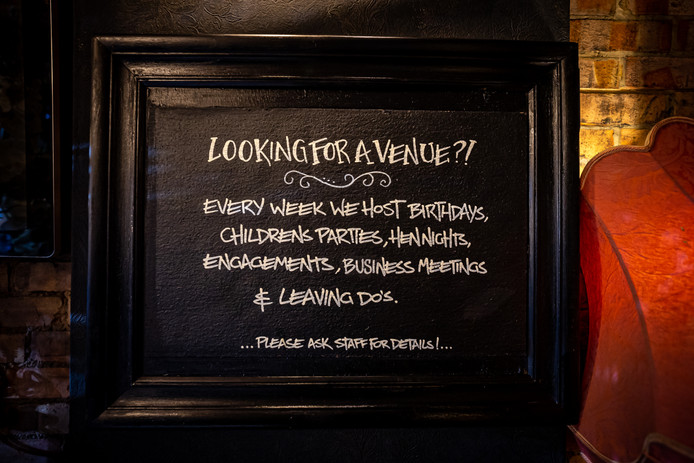 LOOKING FOR A VENUE?!
EVERY WEEK WE HOST BIRTHDAYS,
CHILDRENS PARTIES, HEN NIGHTS,
ENGAGEMENTS, BUSINESS MEETINGS
& LEAVING DO'S.
...PLEASE ASK STAFF FOR DETAILS!...